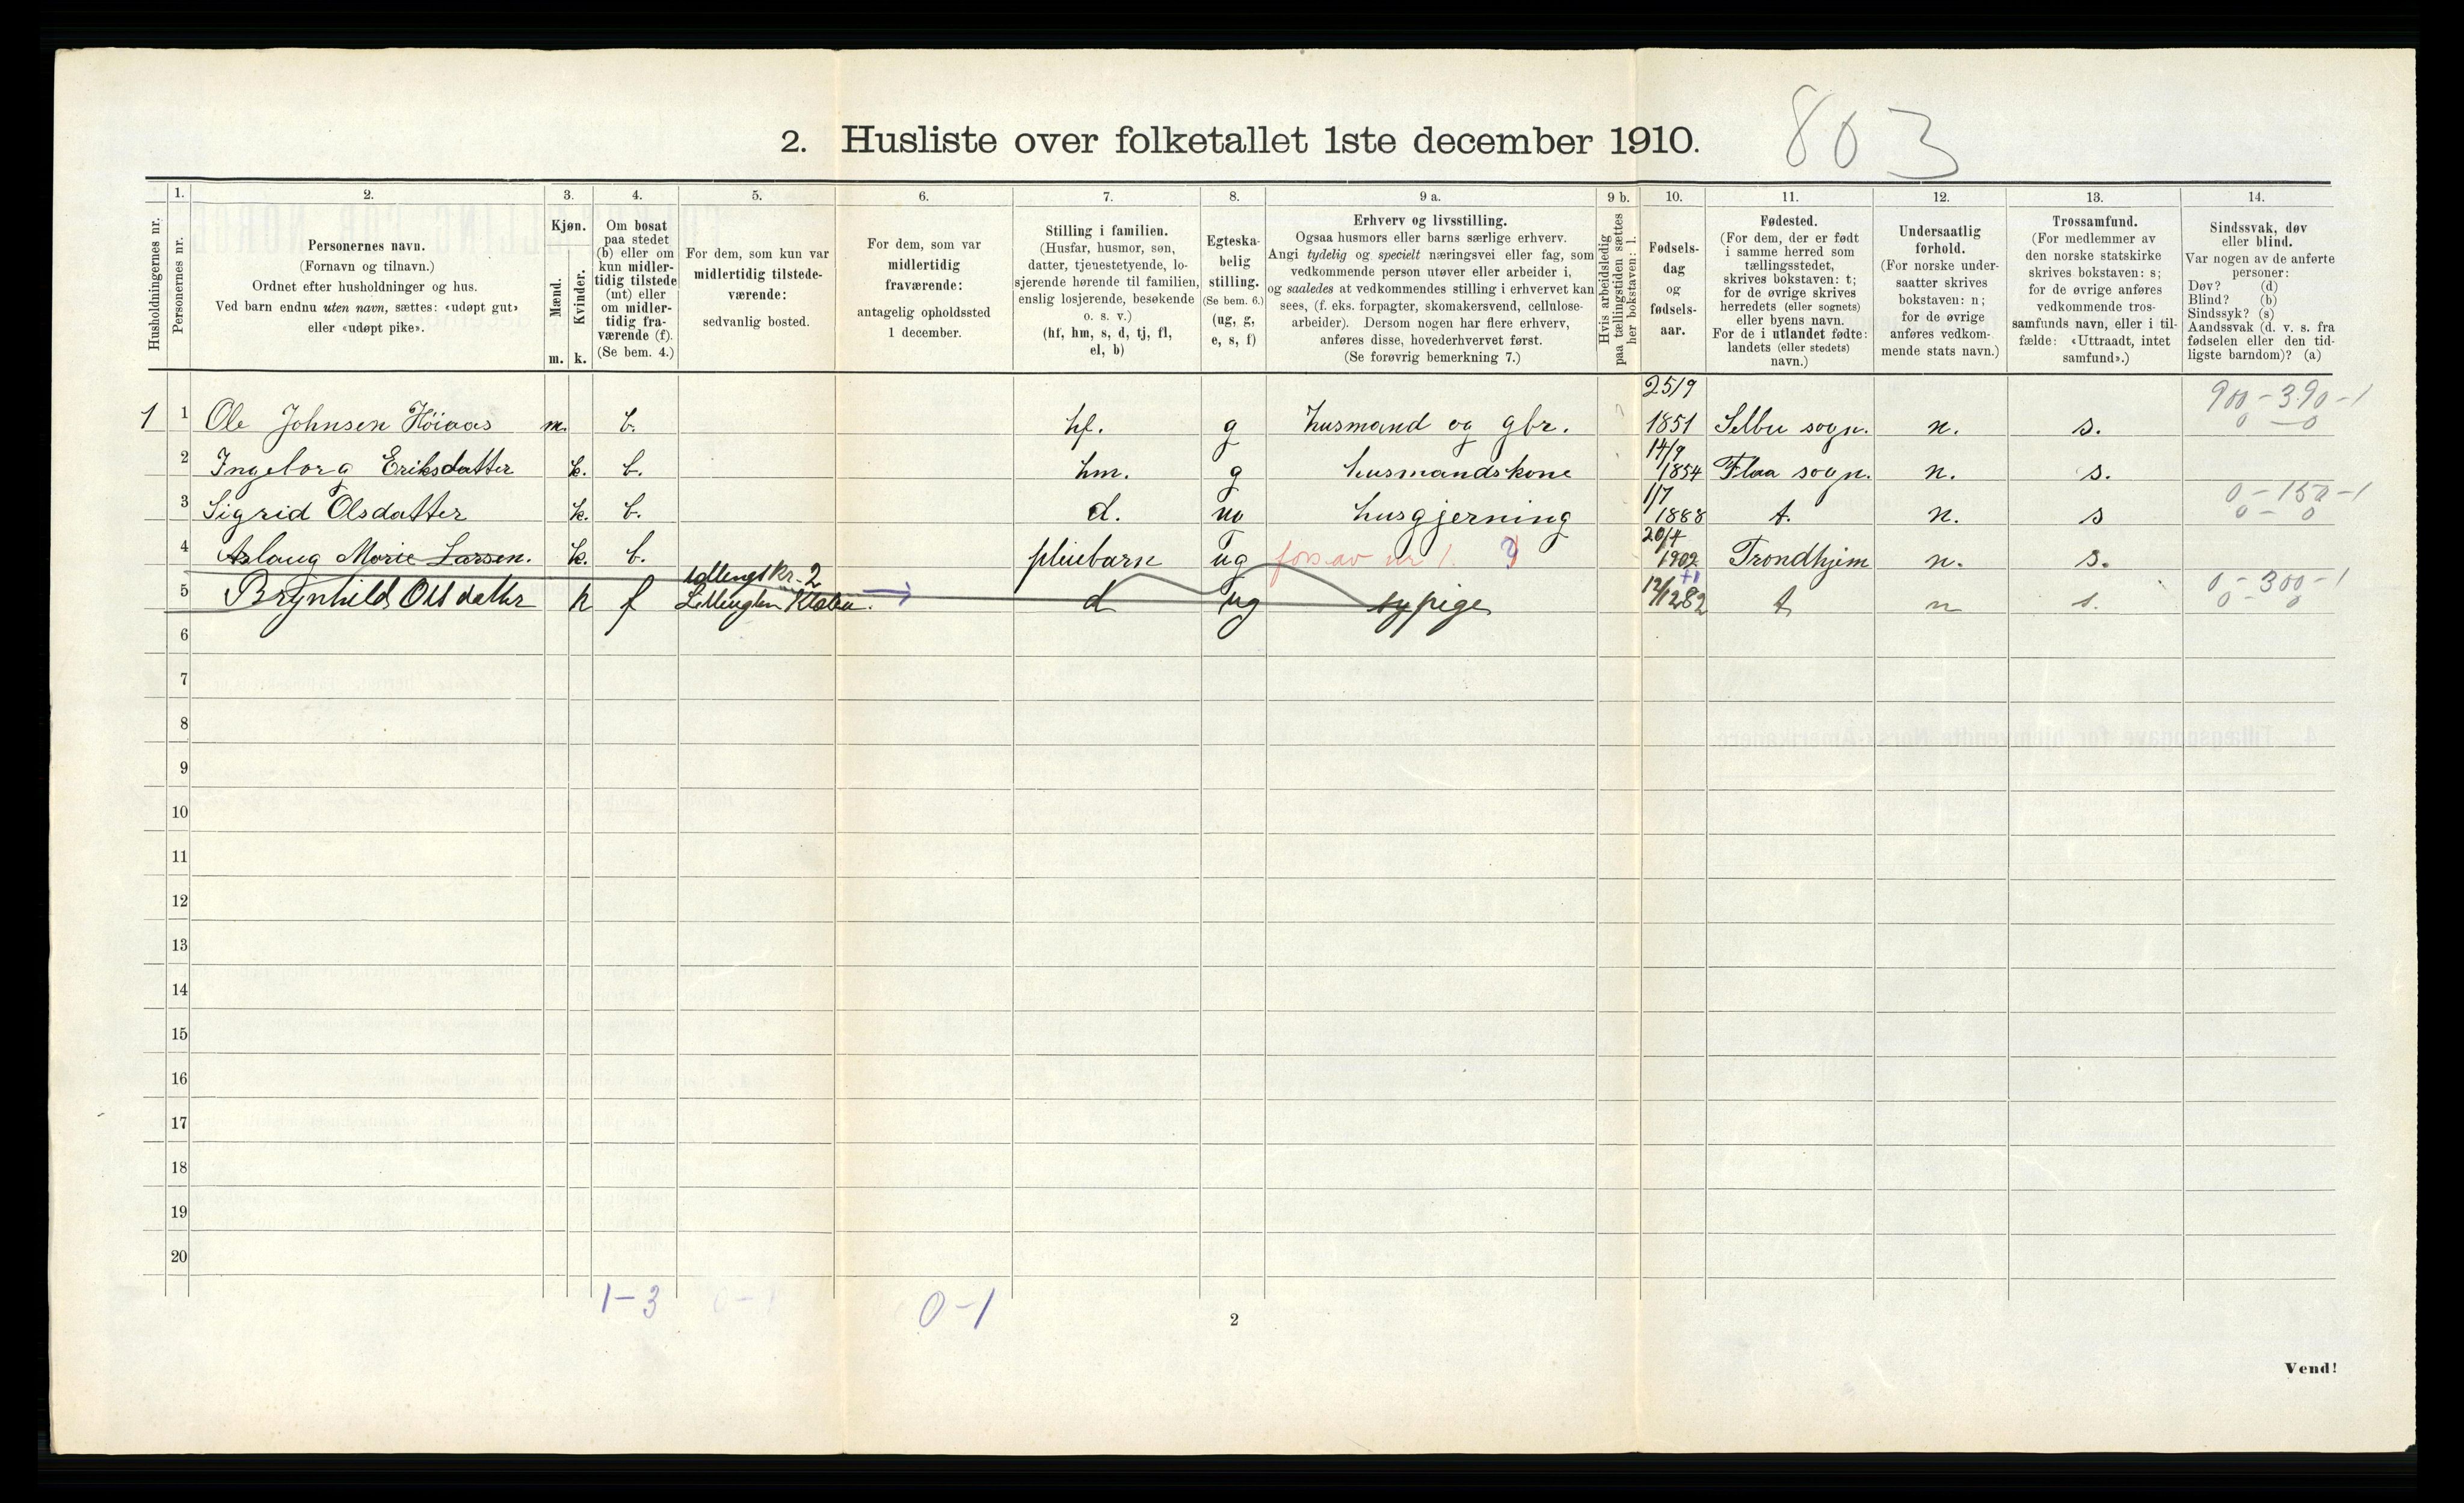 2. Husliste over folketallet 1ste december 1910. 803
Husholdningernes nr.
1.
Personernes nr.
2.
Personernes navn.
(Fornavn og tilnavn.)
Ordnet efter husholdninger og hus.
Ved barn endnu uten navn, sættes: «udøpt gut»
eller «udøpt pike».
3.
Kjøn.
Mænd.
Kvinder.
m. k.
4.
Om bosat
paa stedet
(b) eller om
kun midler-
tidig tilstede
(mt) eller
om midler-
tidig fra-
værende (f).
(Se bem. 4.)
5.
For dem, som kun var
midlertidig tilstede-
værende:
sedvanlig bosted.
6.
For dem, som var
midlertidig
fraværende:
antagelig opholdssted
1 december.
7.
Stilling i familien.
(Husfar, husmor, søn,
datter, tjenestetyende, lo-
sjerende hørende til familien,
enslig losjerende, besøkende
o. s. v.)
(hf, hm, s, d, tj, fl,
el, b)
8.
Egteska-
belig
stilling.
(Se bem. 6.)
(ug, g,
e, s, f)
9 a.
Erhverv og livsstilling.
Ogsaa husmors eller barns særlige erhverv.
Angi tydelig og specielt næringsvei eller fag, som
vedkommende person utøver eller arbeider i,
og saaledes at vedkommendes stilling i erhvervet kan
sees, (f. eks. forpagter, skomakersvend, cellulose-
arbeider). Dersom nogen har flere erhverv,
anføres disse, hovederhvervet først.
(Se forøvrig bemerkning 7.)
9 b.
Hvis arbeidsledig
paa tællingstiden sættes
her bokstaven: l.
10.
Fødsels-
dag
og
fødsels-
aar.
11.
Fødested.
(For dem, der er født
i samme herred som
tællingsstedet,
skrives bokstaven: t;
for de øvrige skrives
herredets (eller sognets)
eller byens navn.
For de i utlandet fødte:
landets (eller stedets)
navn.)
12.
Undersaatlig
forhold.
(For norske under-
saatter skrives
bokstaven: n;
for de øvrige
anføres vedkom-
mende stats navn.)
13.
Trossamfund.
(For medlemmer av
den norske statskirke
skrives bokstaven: s;
for de øvrige anføres
vedkommende tros-
samfunds navn, eller i til-
fælde: «Uttraadt, intet
samfund».)
14.
Sindssvak, døv
eller blind.
Var nogen av de anførte
personer:
Døv? (d)
Blind? (b)
Sindssyk? (s)
Aandssvak (d. v. s. fra
fødselen eller den tid-
ligste barndom)? (a)
25/9 900-390-1
1 1 Ole Johnsen Höiaas m. b. hf. g husmand og gbr. 1851 Selbu sogn. n. s. 0-0
14/9
2 Ingeborg Eriksdatter k. b. hm. g husmandskone 1854 Flaa sogn. n. s.
1/7 0-150-1
3 Sigrid Olsdatter k. b. d. ug husgjerning 1888 t. n. s 0-0
20/4
4 Aslaug Marie Larsen. k. b. pleiebarn ug fors av nr 1. 1902 Trondhjem n. s.
0-300-1
5 Brynhild Olsdatter k f d ug sypige 12/1 282 t n s. 0-0
6
7
8
9
10
11
12
13
14
15
16
17
18
19
20
1-3 0-1 0-1
2
Vend!